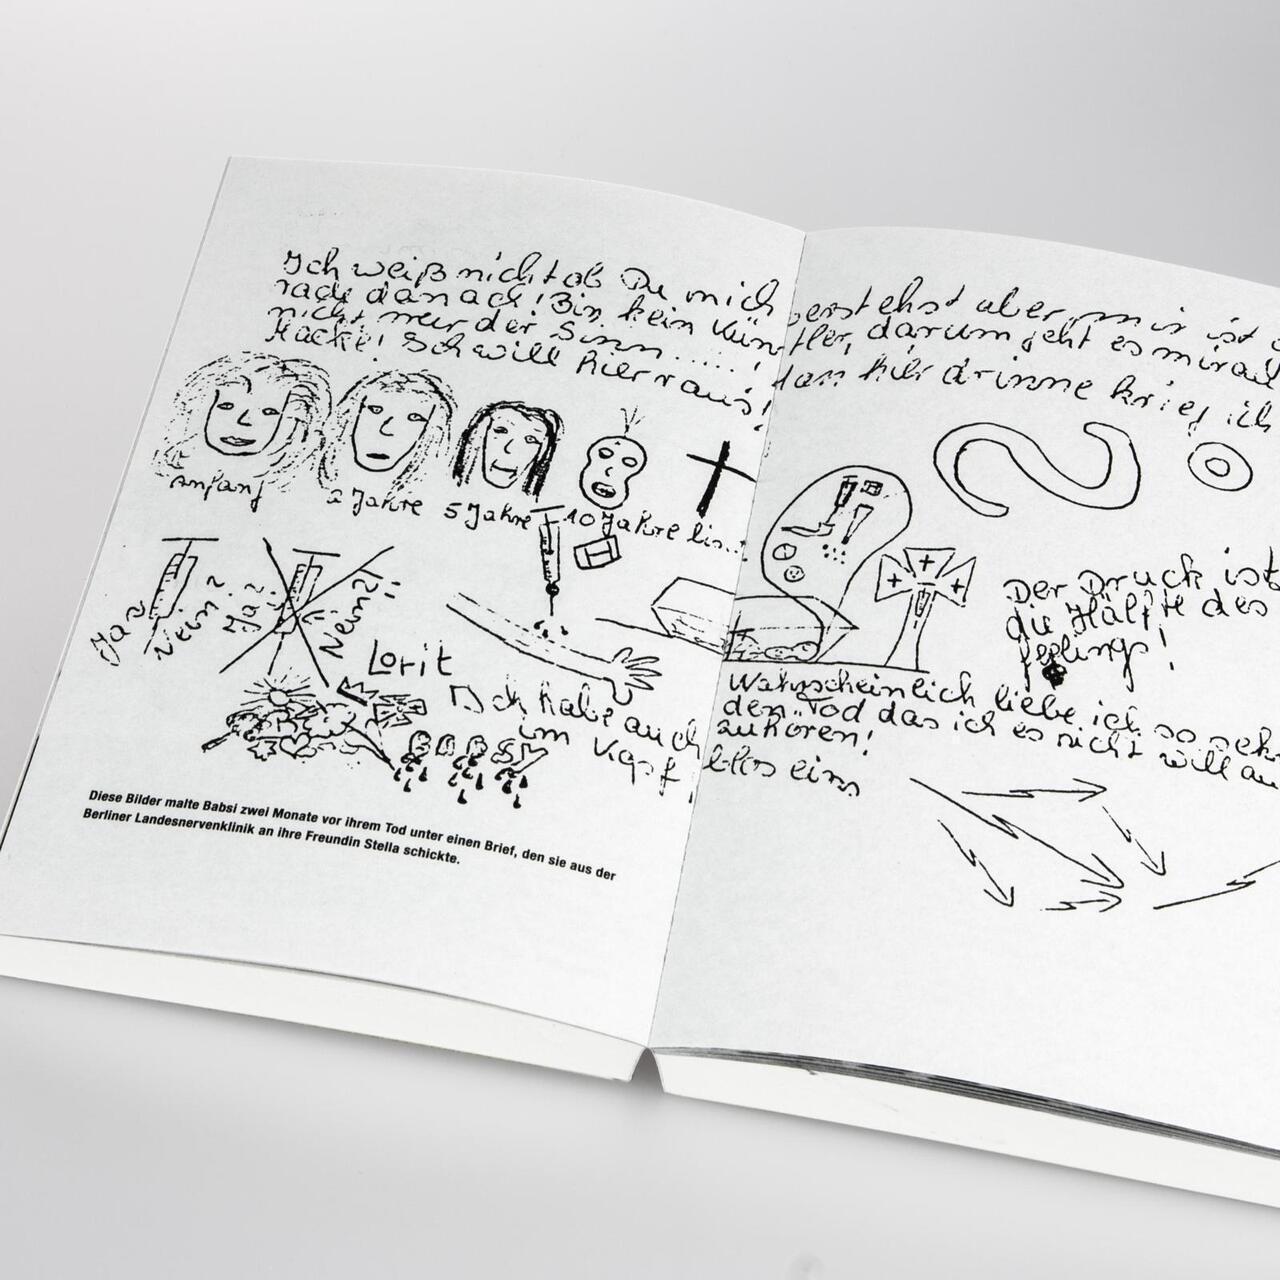 Ich weiß nicht ob Du mich verstehst aber mir ist
danach! Bin kein Künstler, darum geht es mir
nicht mir der Sinn.....!
Hacke! Ich will hier raus! den hier drinne krieg ich
Anfang
2 Jahre
5 Jahre
10 Jahre bis...
Ja?
Nein?
Ja?
Nein?
Lorit
BABSY
Ich habe auch
im Kopf blos eins
Der Druck ist
die Hälfte des
feelings!
Wahrscheinlich liebe ich so sehr
den Tod das ich es nicht will
zuhören!
Diese Bilder malte Babsi zwei Monate vor ihrem Tod unter einen Brief, den sie aus der
Berliner Landesnervenklinik an ihre Freundin Stella schickte.